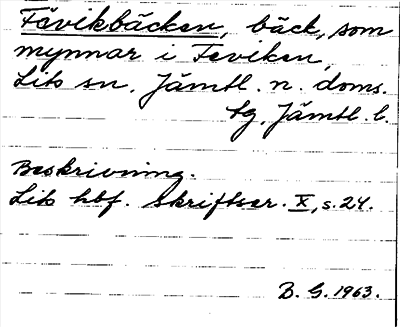 Fävikbäcken, bäck, som
mynnar i Faviken,
Lits sn. Jämtl. n. doms.
tg, Jämtl. l.
Beskrivning.
Lits hbf. Skriftser. X, s. 24.
B. G. 1963.